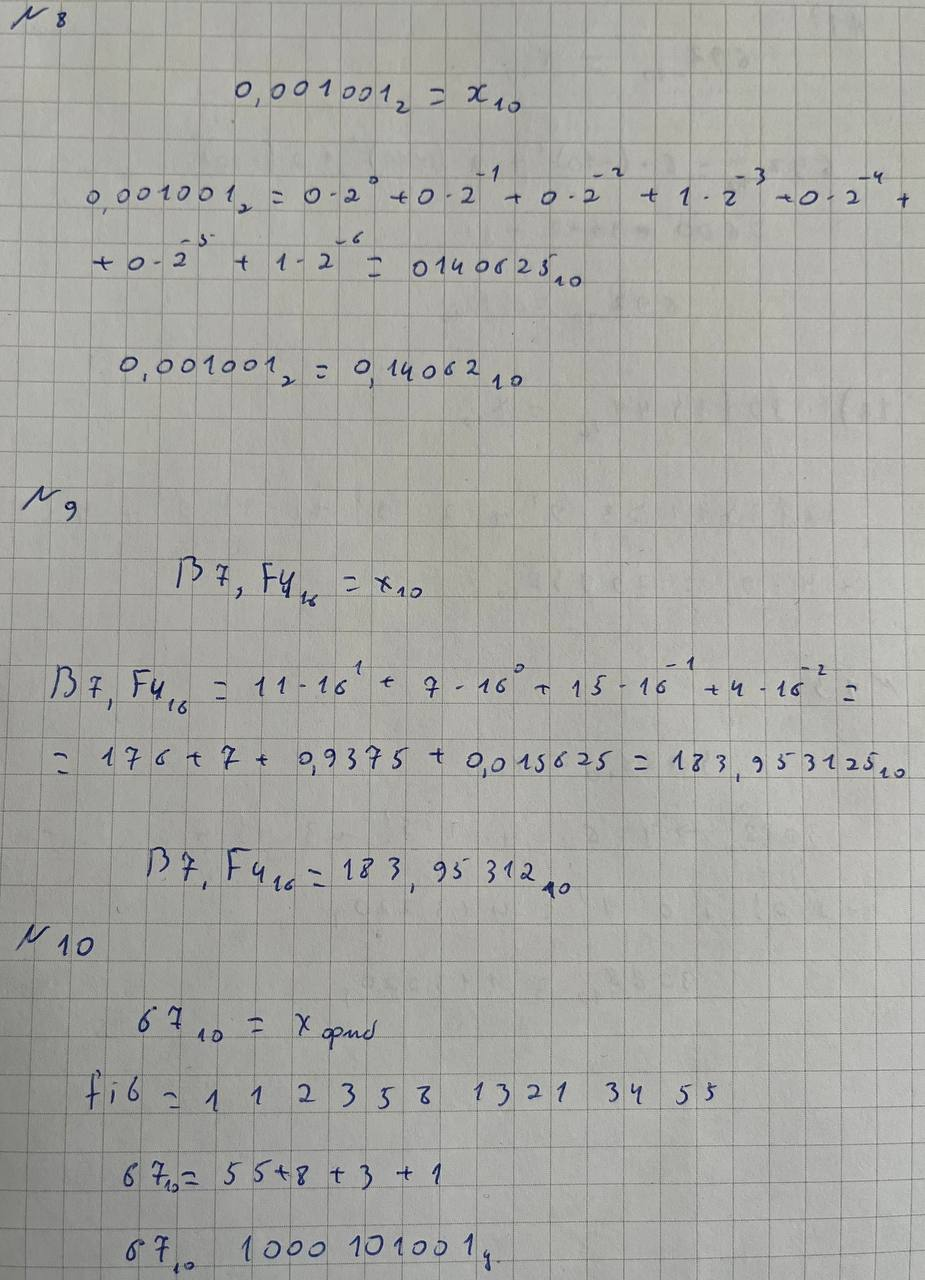 № 8
0,001001₂ = x₁₀
0,001001₂ = 0·2⁰ + 0·2⁻¹ + 0·2⁻² + 1·2⁻³ + 0·2⁻⁴ +
+ 0·2⁻⁵ + 1·2⁻⁶ = 0140625₁₀
0,001001₂ = 0,14062₁₀
№ 9
B7,F4₁₆ = x₁₀
B7,F4₁₆ = 11·16¹ + 7·16⁰ + 15·16⁻¹ + 4·16⁻² =
= 176 + 7 + 0,9375 + 0,015625 = 183,953125₁₀
B7,F4₁₆ = 183,95312₁₀
№ 10
67₁₀ = x фиб
fib = 1 1 2 3 5 8 13 21 34 55
67₁₀ = 55 + 8 + 3 + 1
67₁₀ 1000101001